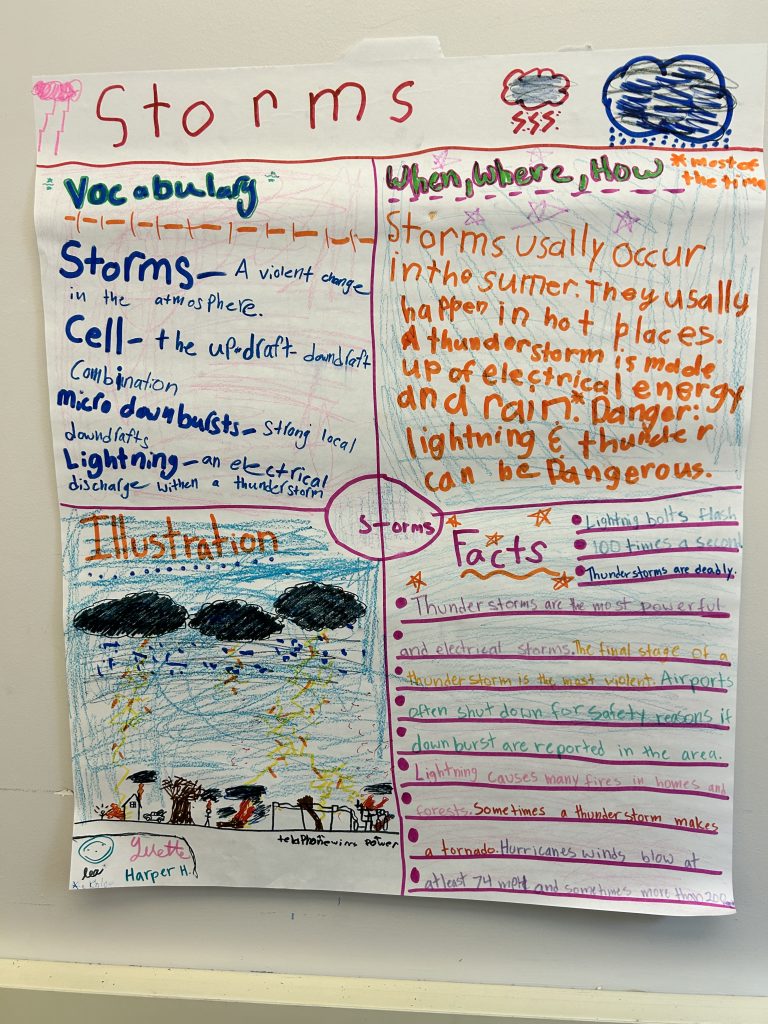 Storms
Vocabulary
Storms- A violent change
in the atmosphere.
Cell- the up-draft- downdraft
Combination
micro downbursts- strong local
downdrafts
Lightning- an electrical
discharge within a thunderstorm
When, Where, How
*most of
the time
Storms usally occur
in the sumer. They usally
happen in hot places.
A thunderstorm is made
up of electrical energy
and rain.* Danger:
lightning & thunder
can be Dangerous.
Storms
Illustration
telephone wire power
Yuette
Harper H.
Facts
Lightnig bolts flash
100 times a second
Thunderstorms are deadly.
Thunderstorms are the most powerful
and electrical storms. The final stage of a
thunderstorm is the most violent. Airports
often shut down for safety reasons if
downburst are reported in the area.
Lightning causes many fires in homes and
forests. Sometimes a thunderstorm makes
a tornado. Hurricanes winds blow at
atleast 74 mph and sometimes more than 200